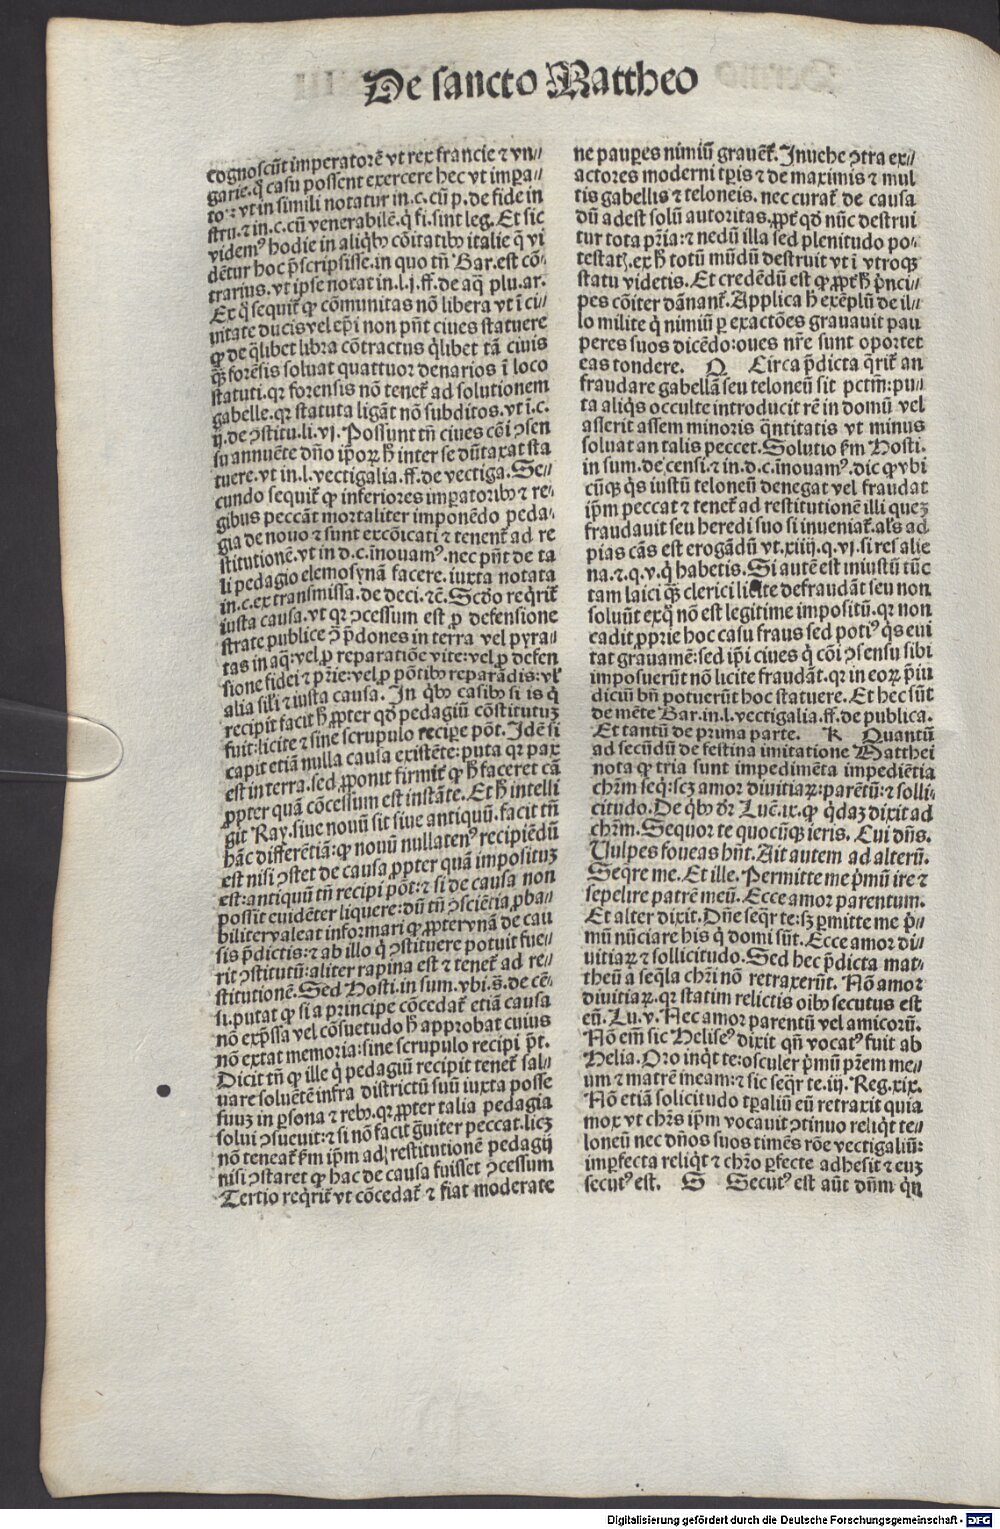 De sancto Mattheo
cognoscũt imperatorẽ vt rex francie ⁊ vn//
garie. q̃ casu possent exercere hec vt impera/
to⁊: vt in simili notatur in. c. cũ p. de fide in
stru. ⁊ in. c. cũ venerabilẽ. q̃ fi. sint leg. Et sic
videmꝰ hodie in aliqbꝰ cõitatibꝰ italie q̃ vi
dẽtur hoc p̃scripsisse. in quo tñ Bar. est cõ/
trarius. vt ipse notat in. l. j. ff. de aq̃ plu. ar.
Ex q̃ sequiť ꝙ cõmunitas nõ libera vt ĩ ci/
uitate ducis vel ep̃i non pñt ciues statuere
ꝙ de q̃libet libra cõtractus q̃libet tã ciuis
q̃ȝ forẽsis soluat quattuor denarios ĩ loco
statuti. qꝛ forensis nõ teneť ad solutionem
gabelle. qꝛ statuta ligãt nõ subditos. vt ĩ. c.
ij. de ꝯstitu. li. vj. Possunt tñ ciues cõi ꝯsen
su annuẽte dño ip̃oꝝ h̃ inter se dũtaxat sta
tuere. vt in. l. vectigalia. ff. de vectiga. Se/
cundo sequiť ꝙ inferiores imꝑatoribꝰ ⁊ re/
gibus peccãt mortaliter imponẽdo peda/
gia de nouo ⁊ sunt excõicati ⁊ tenenť ad re
stitutionẽ. vt in d. c. ĩnouamꝰ. nec pñt de ta
li pedagio elemosynã facere. iuxta notata
in. c. ex transmissa. de deci. ⁊č. Scďo reqriť
iusta causa. vt qꝛ ꝯcessum est ꝓ defensione
strate publice ꝯ p̃dones in terra vel pyra/
tas in aq̃: vel ꝓ reparatiõe vite: vel ꝓ defen
sione fidei ⁊ pr̃ie: vel ꝓ põtibꝰ reparãdis: vl̃
alia sil̃i ⁊ iusta causa. In qbꝰ casibꝰ si is q̃
recipit facit h̃ ꝓpter qď pedagiũ cõstitutuȝ
fuit: licite ⁊ sine scrupulo recipe põt. Idẽ si
capit etiã nulla causa existẽte: puta qꝛ pax
est in terra. sed ꝓponit firmiť ꝙ h̃ faceret cã
ꝓpter quã cõcessum est instãte. Et h̃ intelli
git Ray. siue nouũ sit siue antiquũ. facit tñ
hãc differẽtiã: ꝙ nouũ nullatenꝰ recipiẽdũ
est nisi ꝯstet de causa ꝓpter quã imposituȝ
est: antiquũ tñ recipi põt: ⁊ si de causa non
possit euidẽter liquere: dũ tñ ꝯsciẽtia ꝓba/
biliter valeat informari ꝙ ꝓpter vnã de cau
sis p̃dictis: ⁊ ab illo q̃ ꝯstituere potuit fue/
rit ꝯstitutũ: aliter rapina est ⁊ teneť ad re//
stitutionẽ. Sed Hosti. in sum. vbi. s̃. de cẽ/
si. putat ꝙ si a principe cõcedať etiã causa
nõ exp̃ssa vel cõsuetudo h̃ approbat cuius
nõ extat memoria: sine scrupulo recipi p̃t.
Dicit tñ ꝙ ille q̃ pedagiũ recipit teneť sal/
uare soluẽtẽ infra districtũ suũ iuxta posse
suuȝ in ꝑsona ⁊ rebꝰ. qꝛ ꝓpter talia pedagia
solui ꝯsueuit: ⁊ si nõ facit g̃uiter peccat. licȝ
nõ teneať ẜm ip̃m ad restitutionẽ pedagij
nisi ꝯstaret ꝙ hac de causa fuisset ꝯcessum
Tertio reqriť vt cõcedať ⁊ fiat moderate
ne pauꝑes nimiũ grauenť. Inuehe ꝯtra ex//
actores moderni tꝑis ⁊ de maximis ⁊ mul
tis gabellis ⁊ teloneis. nec curať de causa
dũ adest solũ autoritas. ꝓpť qď nũc destrui
tur tota pr̃ia: ⁊ nedũ illa sed plenitudo po/
testatꝭ. ex h̃ totũ mũdũ destruit vt ĩ vtroqȝ
statu videtis. Et credẽdũ est ꝙ ꝓpť h̃ p̃nci/
pes cõiter dãnanť. Applica h̃ exẽplũ de il/
lo milite q̃ nimiũ ꝑ exactões grauauit pau
peres suos dicẽdo: oues nr̃e sunt oportet
eas tondere. Q Circa p̃dicta q̃riť an
fraudare gabellã seu teloneũ sit pctm̃: pu/
ta aliq̃s occulte introducit rẽ in domũ vel
asserit assem minoris q̃ntitatis vt minus
soluat an talis peccet. Solutio ẜm Hosti.
in sum. de censi. ⁊ in. d. c. ĩnouamꝰ. dic ꝙ vbi
cũqȝ q̃s iustũ teloneũ denegat vel fraudat
ip̃m peccat ⁊ teneť ad restitutionẽ illi quez
fraudauit seu heredi suo si inueniať. al̃s ad
pias cãs est erogãdũ vt. xiiij. q. vj. si res alie
na. ⁊. q. v. q̃ habetis. Si autẽ est iniustũ tũc
tam laici q̃ȝ clerici licite defraudãt seu non
soluũt exq̃ nõ est legitime impositũ. qꝛ non
cadit ꝓprie hoc casu fraus sed potiꝰ q̃s eui
tat grauamẽ: sed ip̃i ciues q̃ cõi ꝯsensu sibi
imposuerũt nõ licite fraudãt. qꝛ in eoꝝ p̃iu
diciũ bñ potuerũt hoc statuere. Et hec sũt
de mẽte Bar. in. l. vectigalia. ff. de publica.
Et tantũ de prima parte. R Quantũ
ad secũdũ de festina imitatione Matthei
nota ꝙ tria sunt impedimẽta impediẽtia
chr̃m seq̃: scȝ amor diuitiaꝝ: parẽtũ: ⁊ solli/
citudo. De qbꝰ dr̃ Luč. ix. ꝙ q̃daȝ dixit ad
chr̃m. Sequor te quocũqȝ ieris. Cui dñs.
Vulpes foueas hñt. Ait autem ad alterũ.
Seqre me. Et ille. Permitte me p̃mũ ire ⁊
sepelire patrẽ meũ. Ecce amor parentum.
Et alter dixit. Dñe seq̃r te: sȝ ꝑmitte me p̃/
mũ nũciare his q̃ domi sũt. Ecce amor di//
uitiaꝝ ⁊ sollicitudo. Sed hec p̃dicta mat/
theũ a seq̃la chr̃i nõ retraxerũt. Nõ amor
diuitiaꝝ. qꝛ statim relictis oĩbꝰ secutus est
eũ. Lu. v. Nec amor parentũ vel amicorũ.
Nõ em̃ sic Heliseꝰ dixit qñ vocatꝰ fuit ab
Helia. Oro inq̃t te: osculer p̃mũ pr̃em me/
um ⁊ matrẽ meam: ⁊ sic seq̃r te. iij. Reg. xix.
Nõ etiã solicitudo tꝑaliũ eũ retraxit quia
mox vt chr̃s ip̃m vocauit ꝯtinuo reliq̃t te/
loneũ nec dños suos timẽs rõe vectigaliũ:
imperfecta reliq̃t ⁊ chr̃o ꝑfecte adhesit ⁊ euȝ
secutꝰ est. S Secutꝰ est aũt dñm q̃n
Digitalisierung gefördert durch die Deutsche Forschungsgemeinschaft - DFG